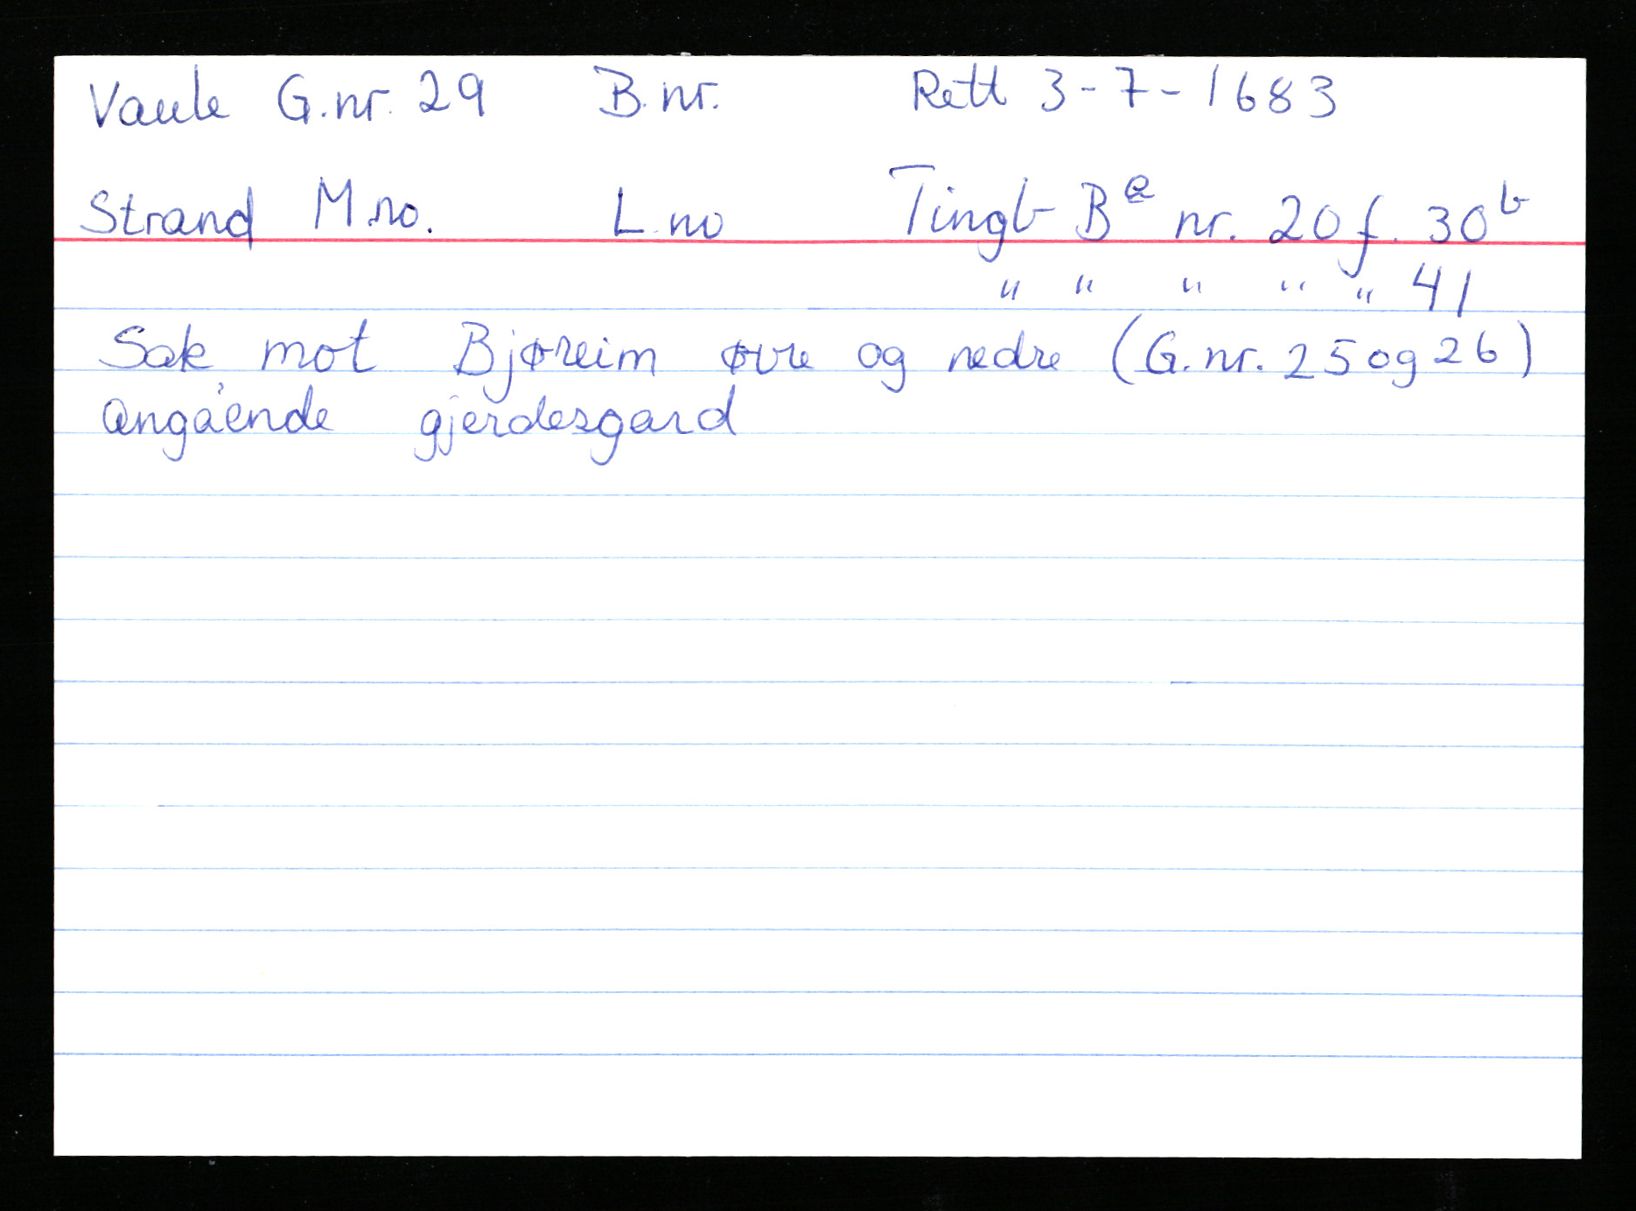 Vaule G.nr. 29 B.nr. Rett 3-7-1683
Strand M.no. L.no Tingb Bª nr. 20 f. 30ᵇ
" " " " " 41
Sak mot Bjøreim øvre og nedre (G.nr. 25 og 26)
angående gjerdesgard